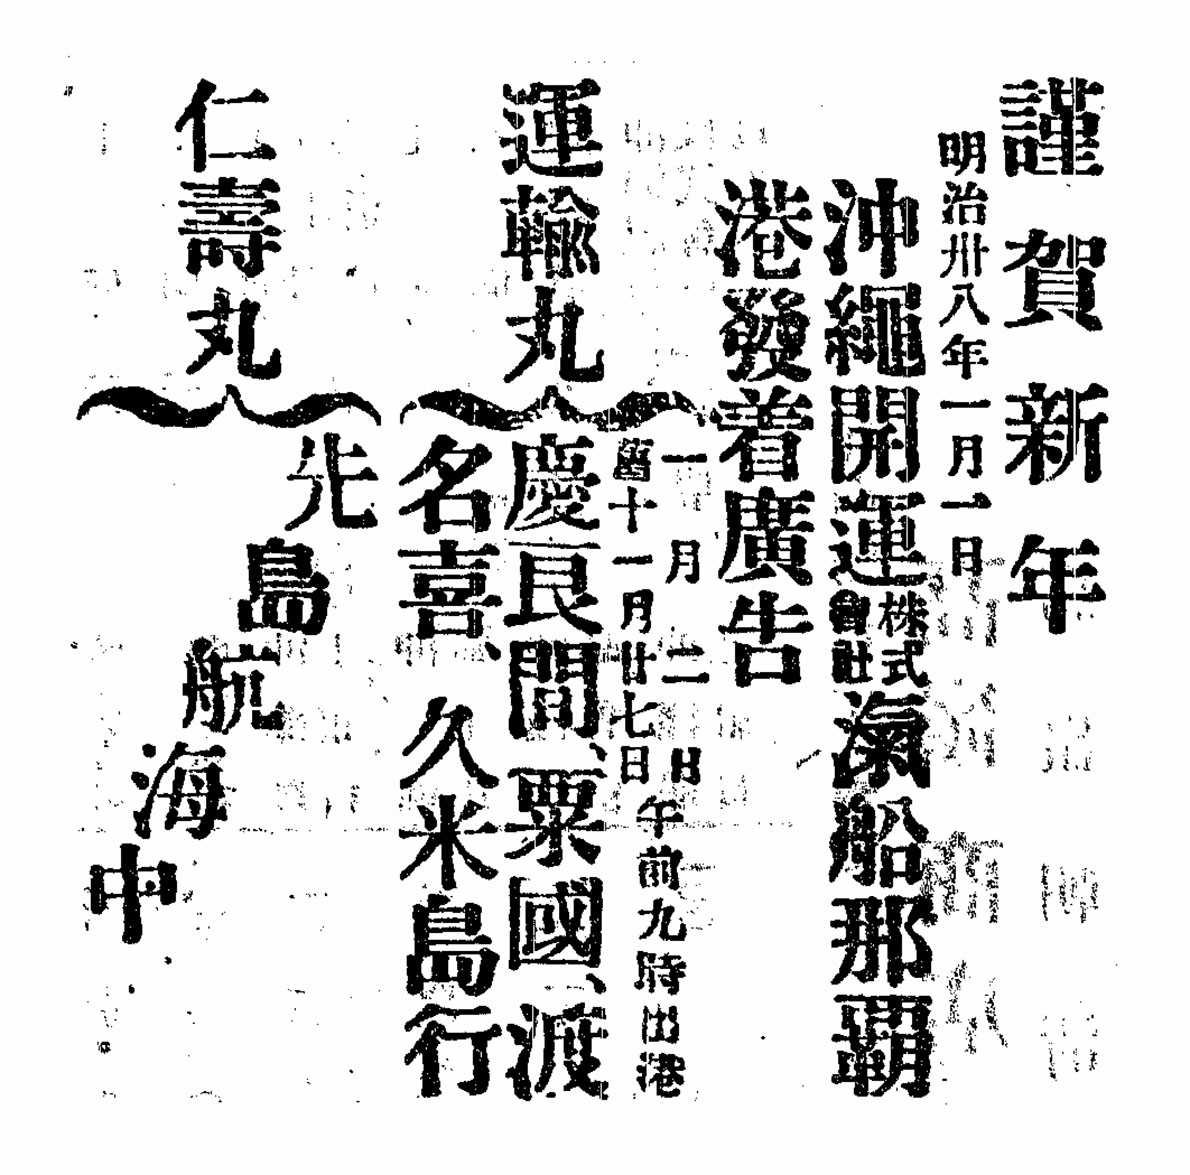 謹賀新年
明治卅八年一月一日
沖繩開運株式會社滊船那覇
港發着廣告
運輸丸
一月二日
舊十一月廿七日
午前九時出港
慶良間、粟國、渡
名喜、久米島行
仁壽丸
先島航海中